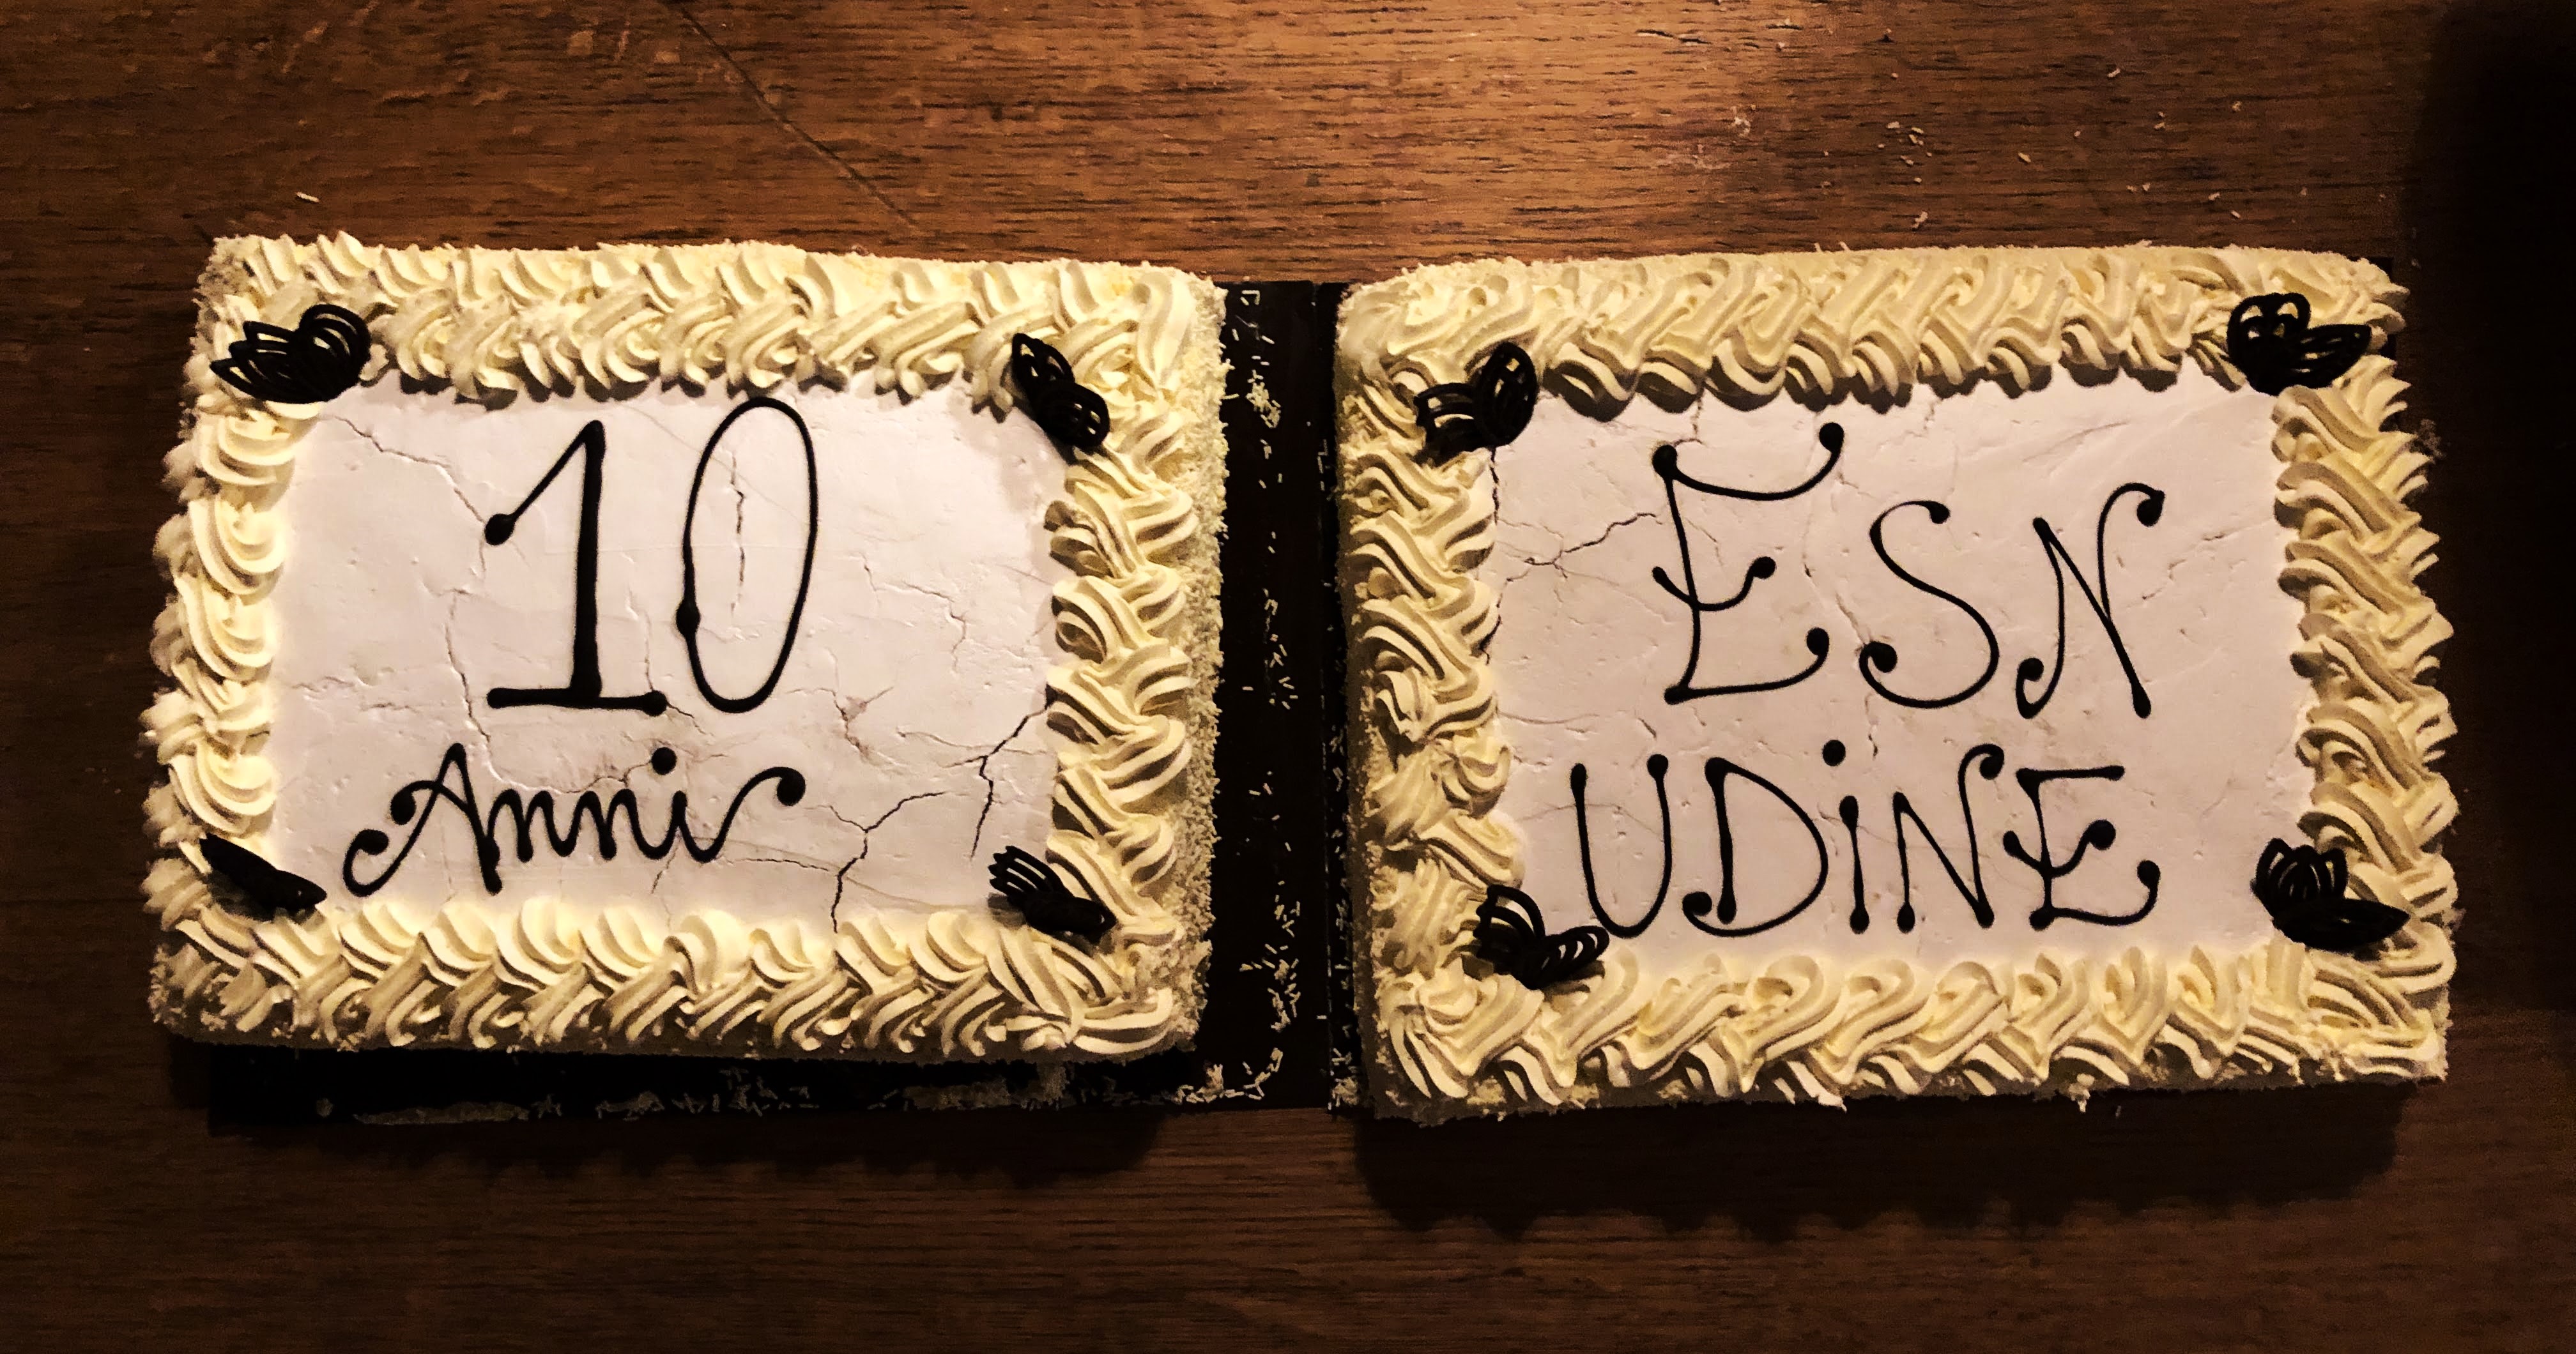 10
Anni
ESN
UDiNE